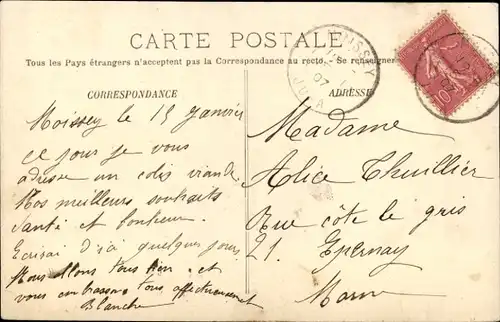 CARTE POSTALE
Tous les Pays étrangers n'acceptent pas la Correspondance au recto. Se renseigner
CORRESPONDANCE
Moissey le 15 Janvier
ce jour je vous
adresse un colis viande
Nos meilleurs souhaits
santé et bonheur.
Ecrirai d'ici quelques jours
Nous allons tous bien et
vous embrassons tous affectueusement
Blanche
ADRESSE
Madame
Alice Thuillier
Rue côte le gris
21. Epernay
Marne
MOISSEY
07
JURA
10